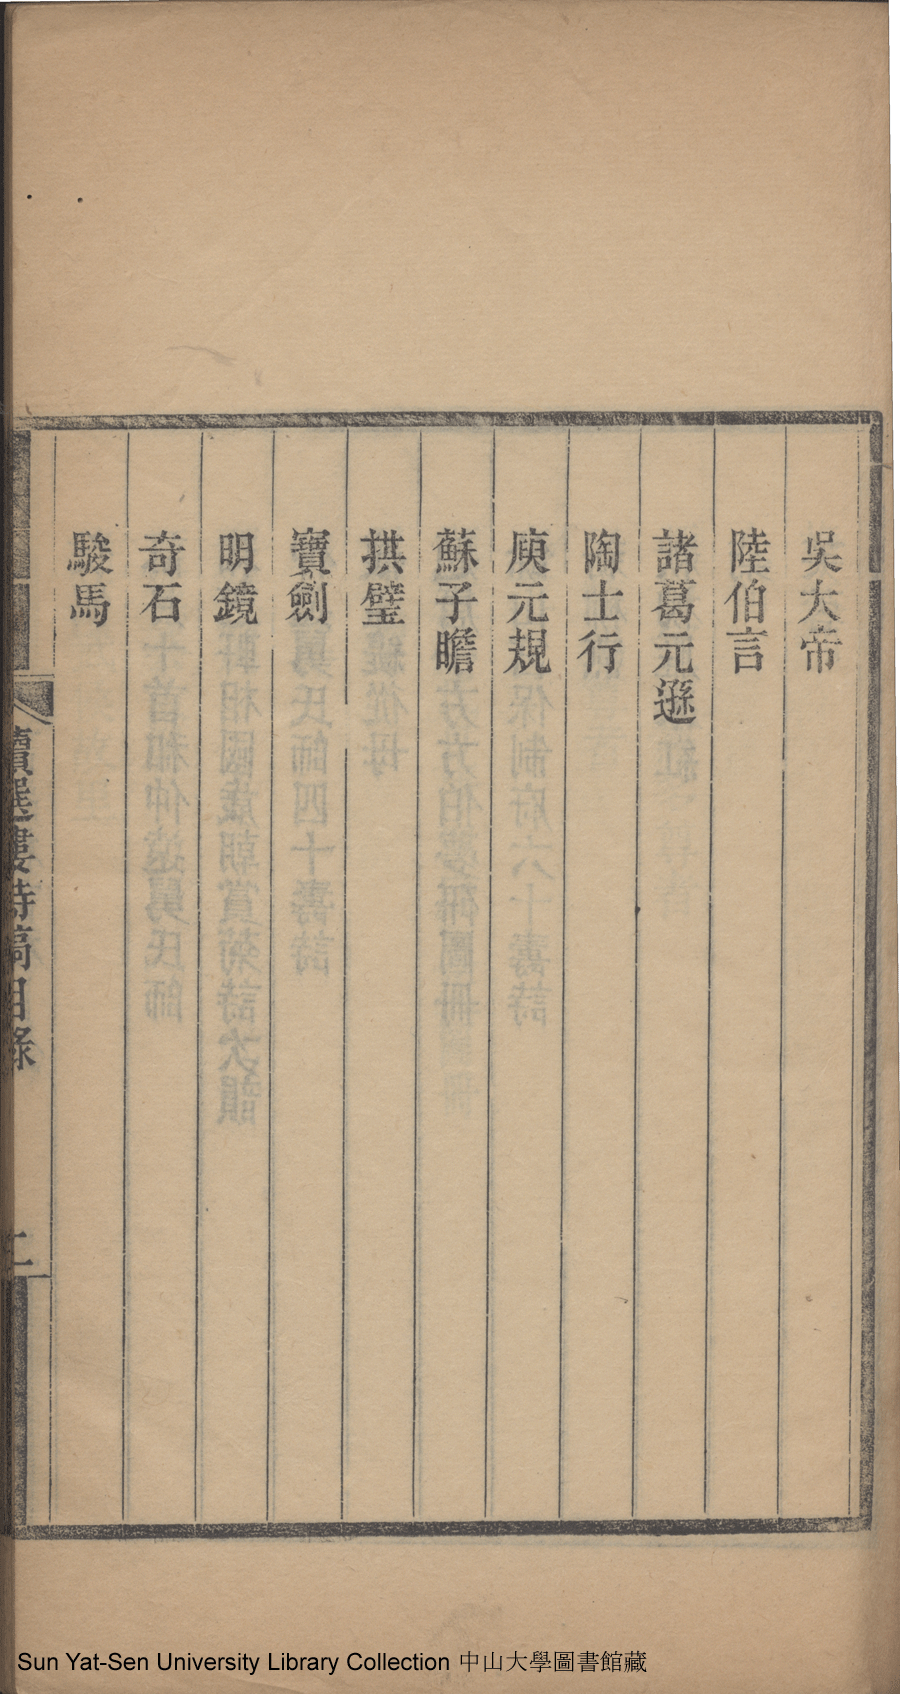 吳大帝
陸伯言
諸葛元遜
陶士行
庾元規
蘇子瞻
拱璧
寶劍
明鏡
奇石
駿馬
讀選樓詩稿目錄
二
Sun Yat-Sen University Library Collection 中山大學圖書館藏